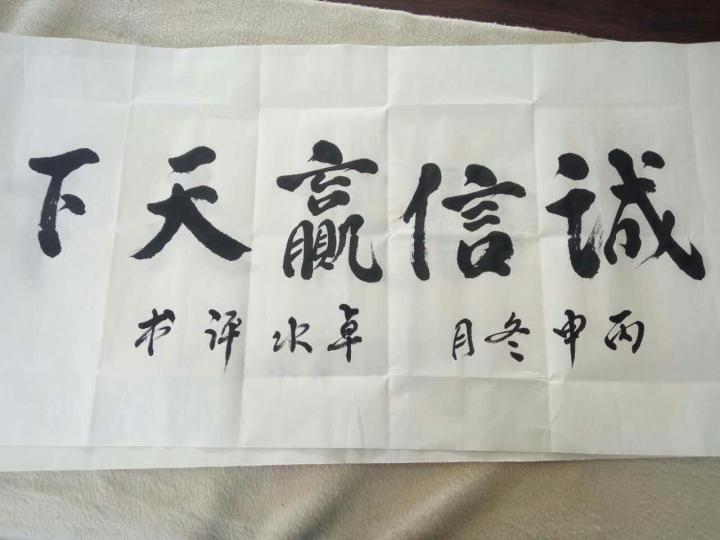 诚信赢天下
丙申冬月 卓水评书